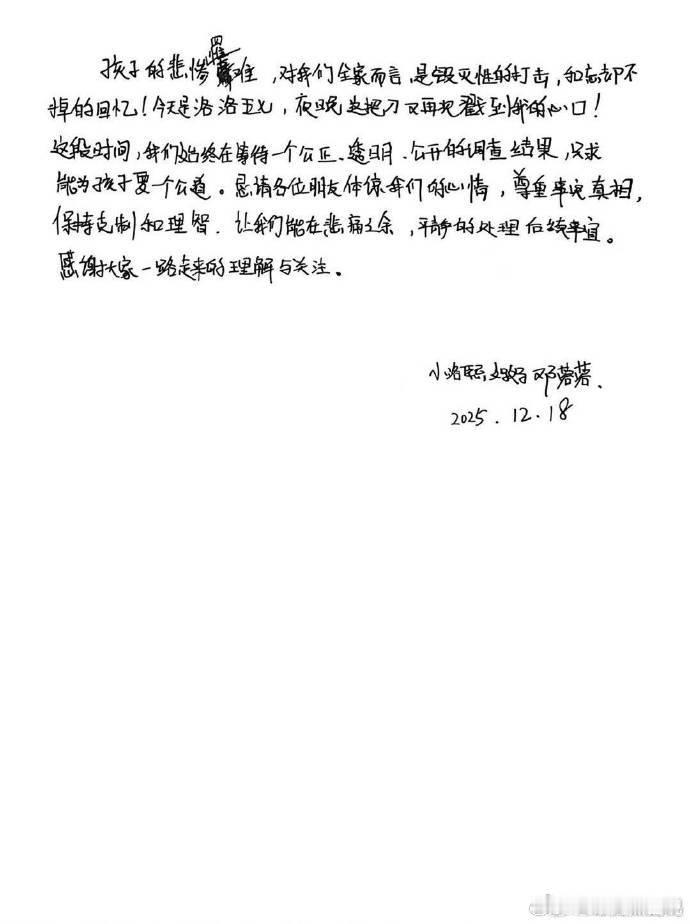 孩子的悲惨罹难，对我们全家而言，是毁灭性的打击，和忘却不
掉的回忆！今天是洛洛五七，夜晚这把刀又再把戳到我的心口！
这段时间，我们始终在等待一个公正、透明、公开的调查结果，只求
能为孩子要一个公道。恳请各位朋友体谅我们的心情，尊重事实真相，
保持克制和理智．让我们能在悲痛之余，平静的处理后续事宜。
感谢大家一路走来的理解与关注。
小洛熙妈妈邓蓉蓉．
2025．12．18